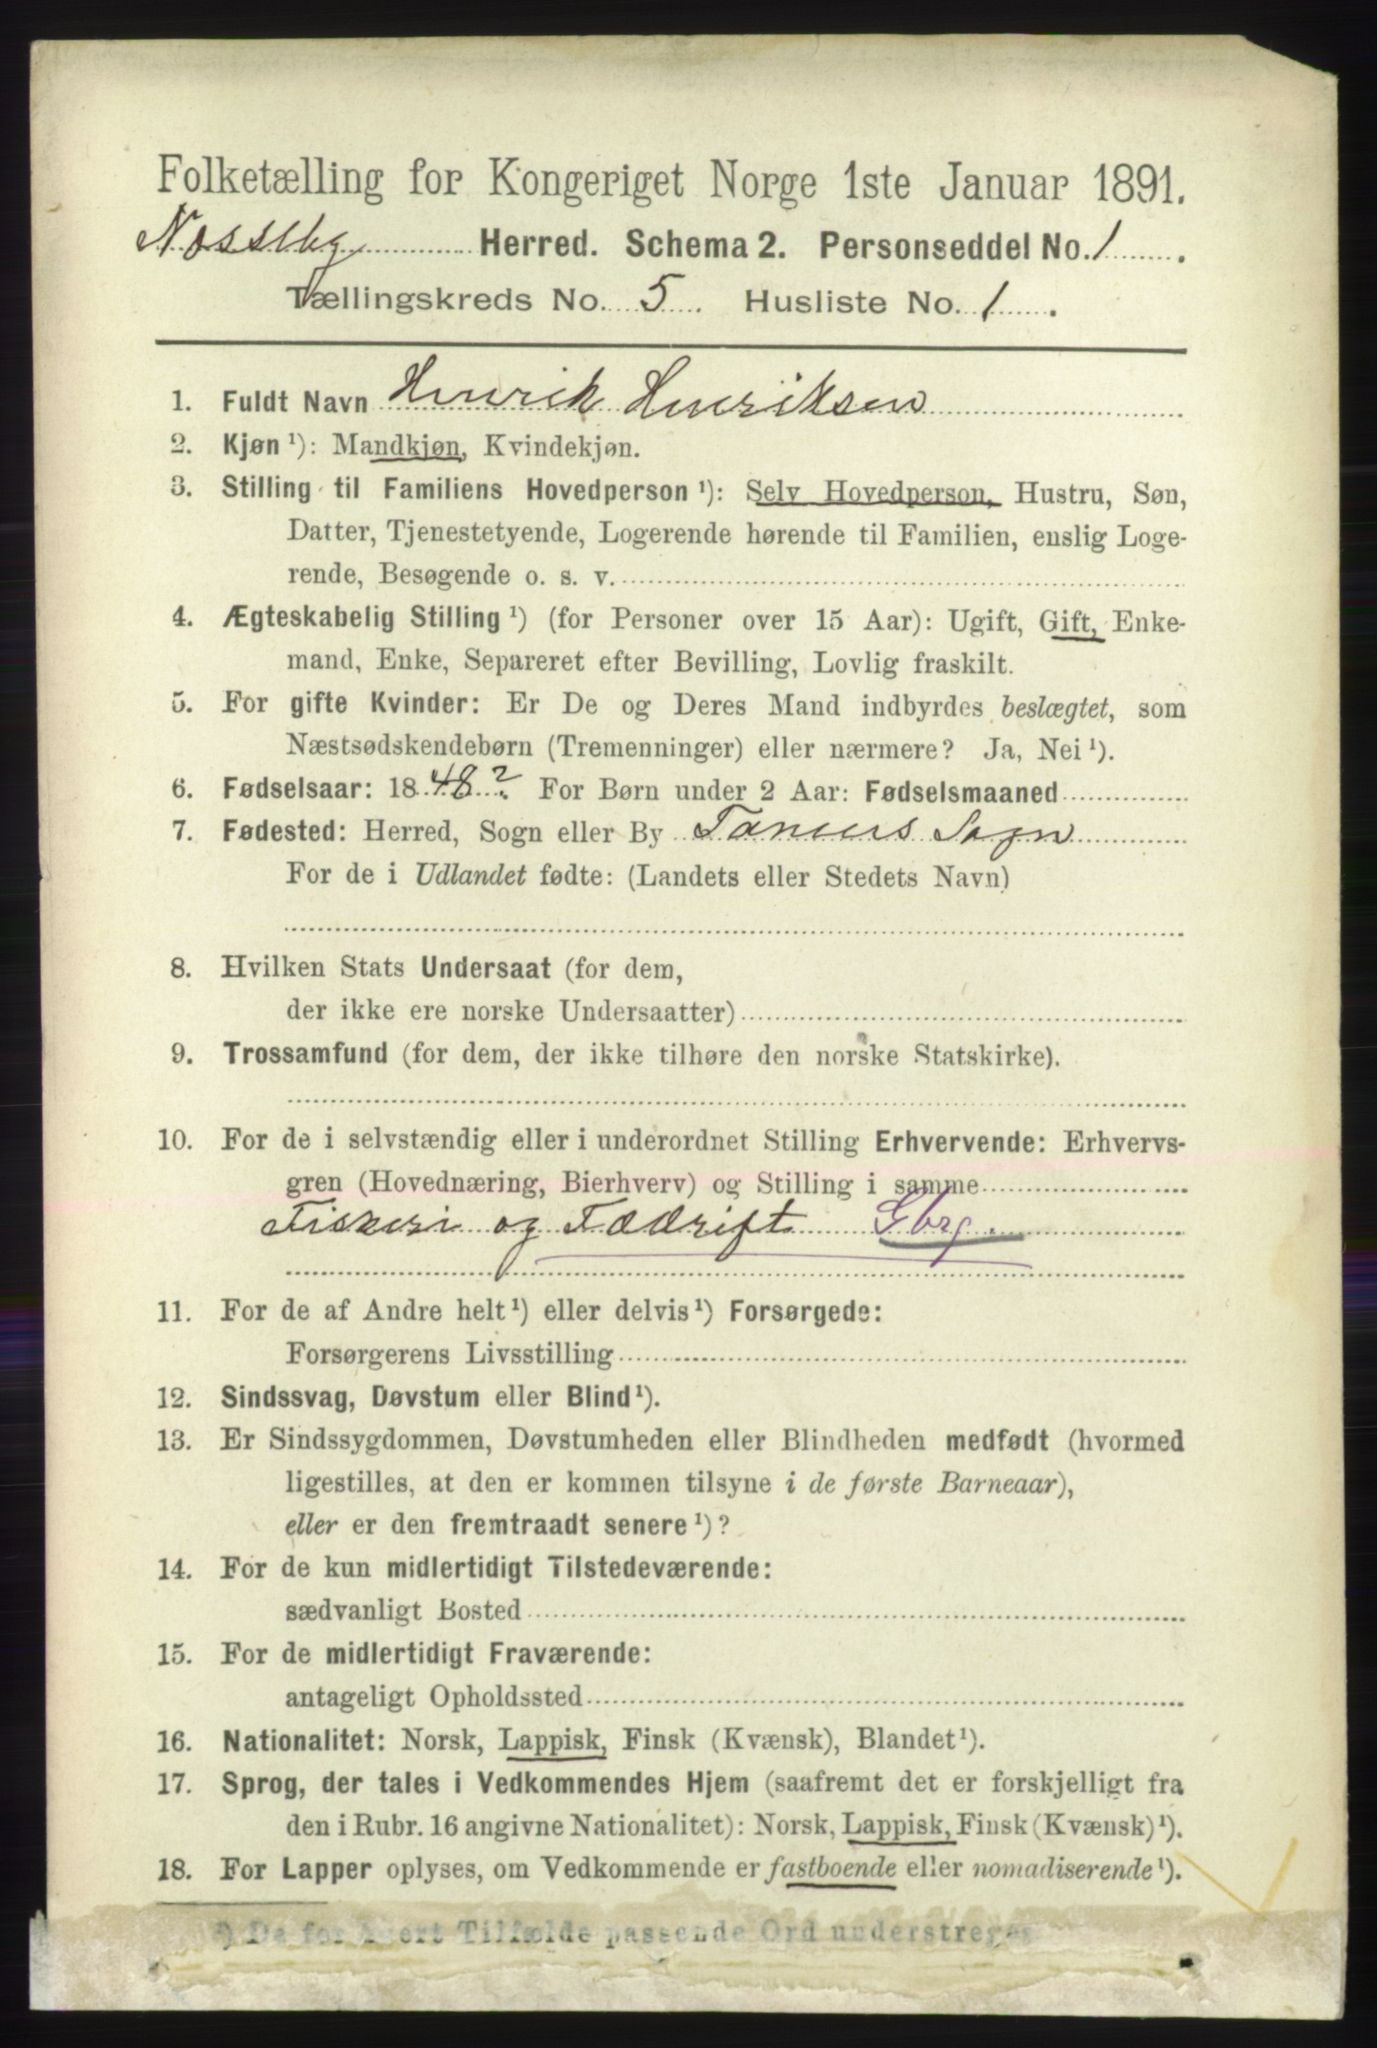 Folketælling for Kongeriget Norge 1ste Januar 1891.
Nesseby Herred. Schema 2. Personseddel No. 1.
Tællingskreds No. 5. Husliste No. 1.
1. Fuldt Navn Henrik Henriksen
2. Kjøn¹): Mandkjøn, Kvindekjøn.
3. Stilling til Familiens Hovedperson¹): Selv Hovedperson, Hustru, Søn,
Datter, Tjenestetyende, Logerende hørende til Familien, enslig Loge-
rende, Besøgende o. s. v.
4. Ægteskabelig Stilling¹) (for Personer over 15 Aar): Ugift, Gift, Enke-
mand, Enke, Separeret efter Bevilling, Lovlig fraskilt.
5. For gifte Kvinder: Er De og Deres Mand indbyrdes beslægtet, som
Næstsødskendebørn (Tremenninger) eller nærmere? Ja, Nei¹).
6. Fødselsaar: 1848? For Børn under 2 Aar: Fødselsmaaned
7. Fødested: Herred, Sogn eller By Tanens Sogn
For de i Udlandet fødte: (Landets eller Stedets Navn)
8. Hvilken Stats Undersaat (for dem,
der ikke ere norske Undersaatter)
9. Trossamfund (for dem, der ikke tilhøre den norske Statskirke).
10. For de i selvstændig eller i underordnet Stilling Erhvervende: Erhvervs-
gren (Hovednæring, Bierhverv) og Stilling i samme
Fiskeri og Fædrift Gbrg.
11. For de af Andre helt¹) eller delvis¹) Forsørgede:
Forsørgerens Livsstilling
12. Sindssvag, Døvstum eller Blind¹).
13. Er Sindssygdommen, Døvstumheden eller Blindheden medfødt (hvormed
ligestilles, at den er kommen tilsyne i de første Barneaar),
eller er den fremtraadt senere¹)?
14. For de kun midlertidigt Tilstedeværende:
sædvanligt Bosted
15. For de midlertidigt Fraværende:
antageligt Opholdssted
16. Nationalitet: Norsk, Lappisk, Finsk (Kvænsk), Blandet¹).
17. Sprog, der tales i Vedkommendes Hjem (saafremt det er forskjelligt fra
den i Rubr. 16 angivne Nationalitet): Norsk, Lappisk, Finsk (Kvænsk)¹).
18. For Lapper oplyses, om Vedkommende er fastboende eller nomadiserende¹).
¹) De for hvert Tilfælde passende Ord understreges